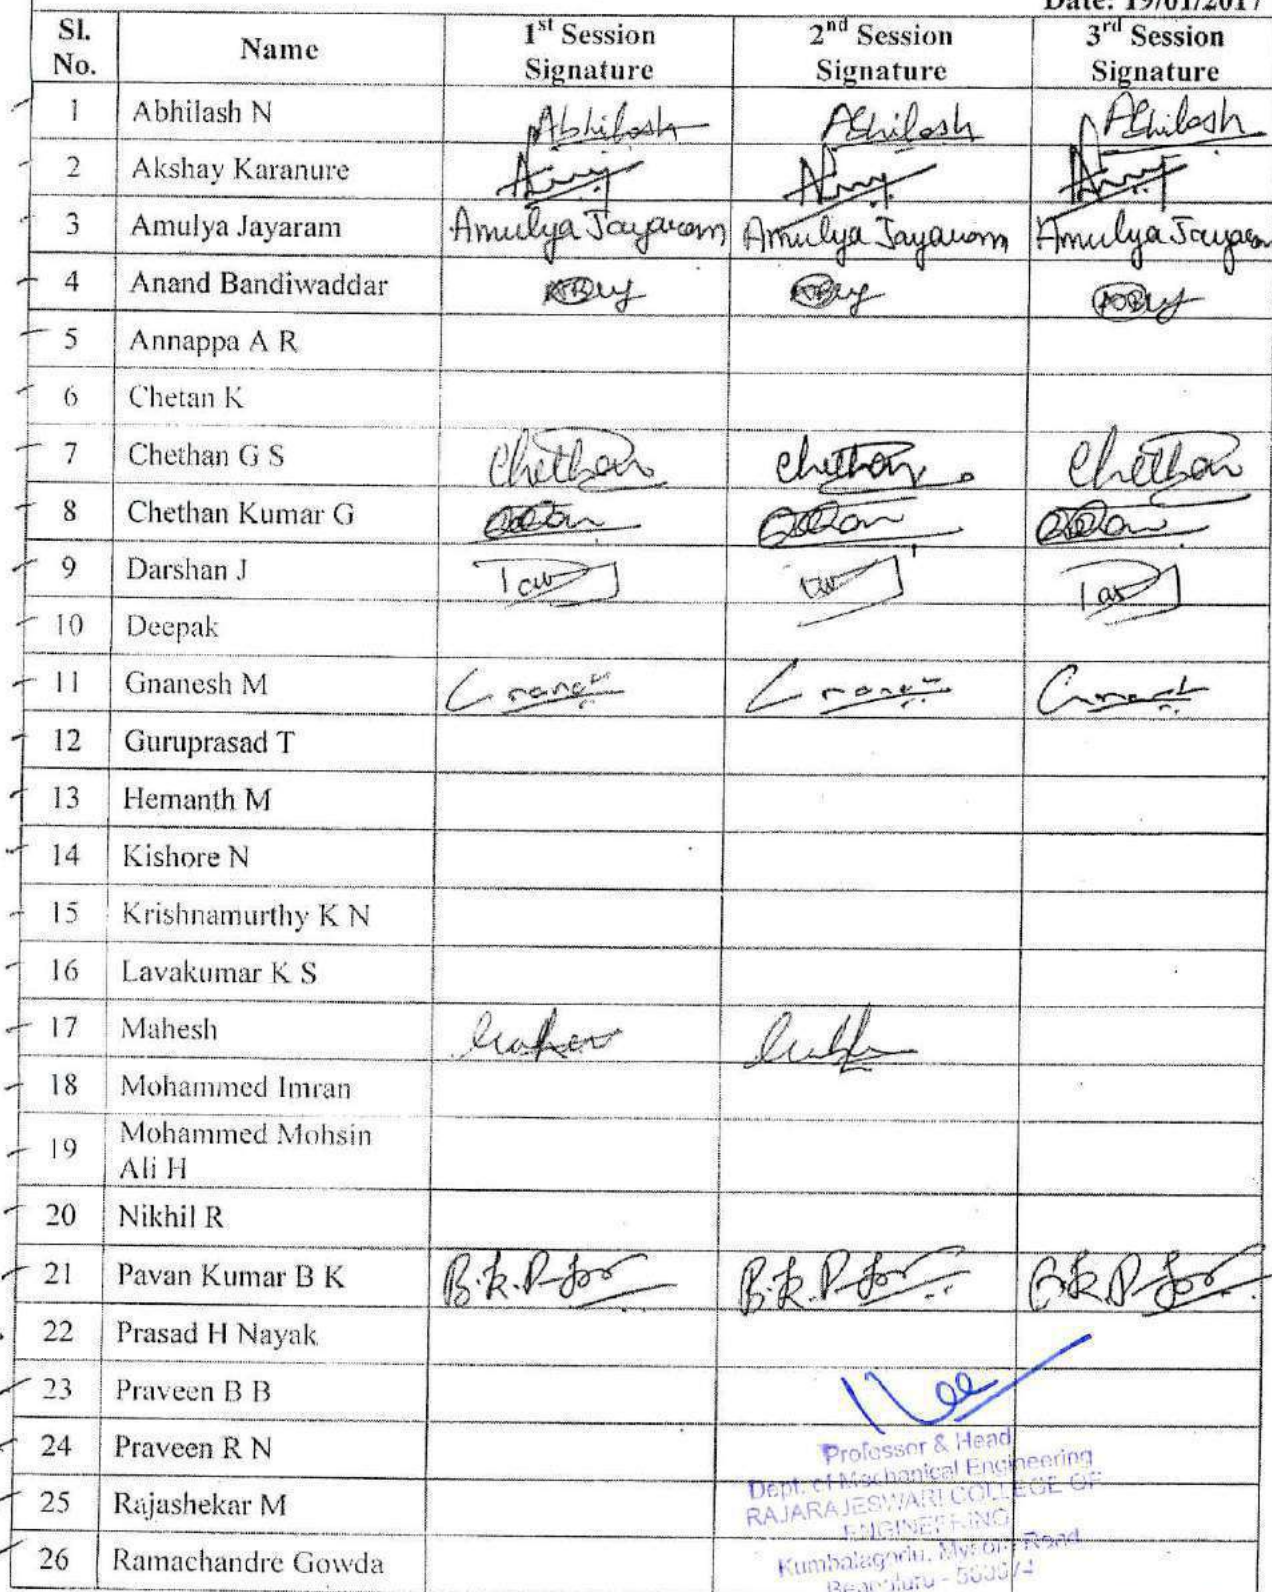 Date: 19/01/2017
Sl. No. Name 1st Session Signature 2nd Session Signature 3rd Session Signature
1 Abhilash N Abhilash Abhilash Abhilash
2 Akshay Karanure
3 Amulya Jayaram Amulya Jayaram Amulya Jayaram Amulya Jayaram
4 Anand Bandiwaddar
5 Annappa A R
6 Chetan K
7 Chethan G S Chethan Chethan Chethan
8 Chethan Kumar G
9 Darshan J
10 Deepak
11 Gnanesh M
12 Guruprasad T
13 Hemanth M
14 Kishore N
15 Krishnamurthy K N
16 Lavakumar K S
17 Mahesh
18 Mohammed Imran
19 Mohammed Mohsin
Ali H
20 Nikhil R
21 Pavan Kumar B K B.K.P B.K.P B K P
22 Prasad H Nayak
23 Praveen B B
24 Praveen R N
25 Rajashekar M
26 Ramachandre Gowda
Professor & Head
Dept. of Mechanical Engineering
RAJARAJESWARI COLLEGE OF
ENGINEERING
Kumbalagodu, Mysore Road
Bengaluru - 560074